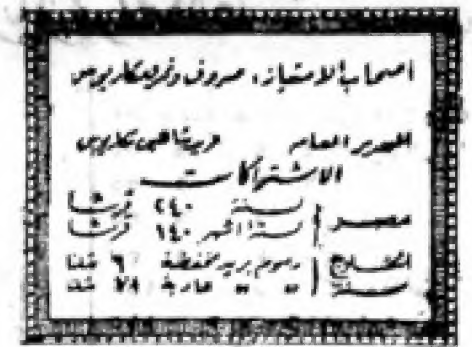 اصحاب الامتياز، صروف ونمر ومكاريوس
المدير العام
الاشتراكات
مصر لسنة ٢٤٠ قرشا
لستة اشهر ١٤٠ قرشا
الخارج رسوم بريد مخفضة ٦٠ شلنا
سنة " " عادية ٧٨ شلنا